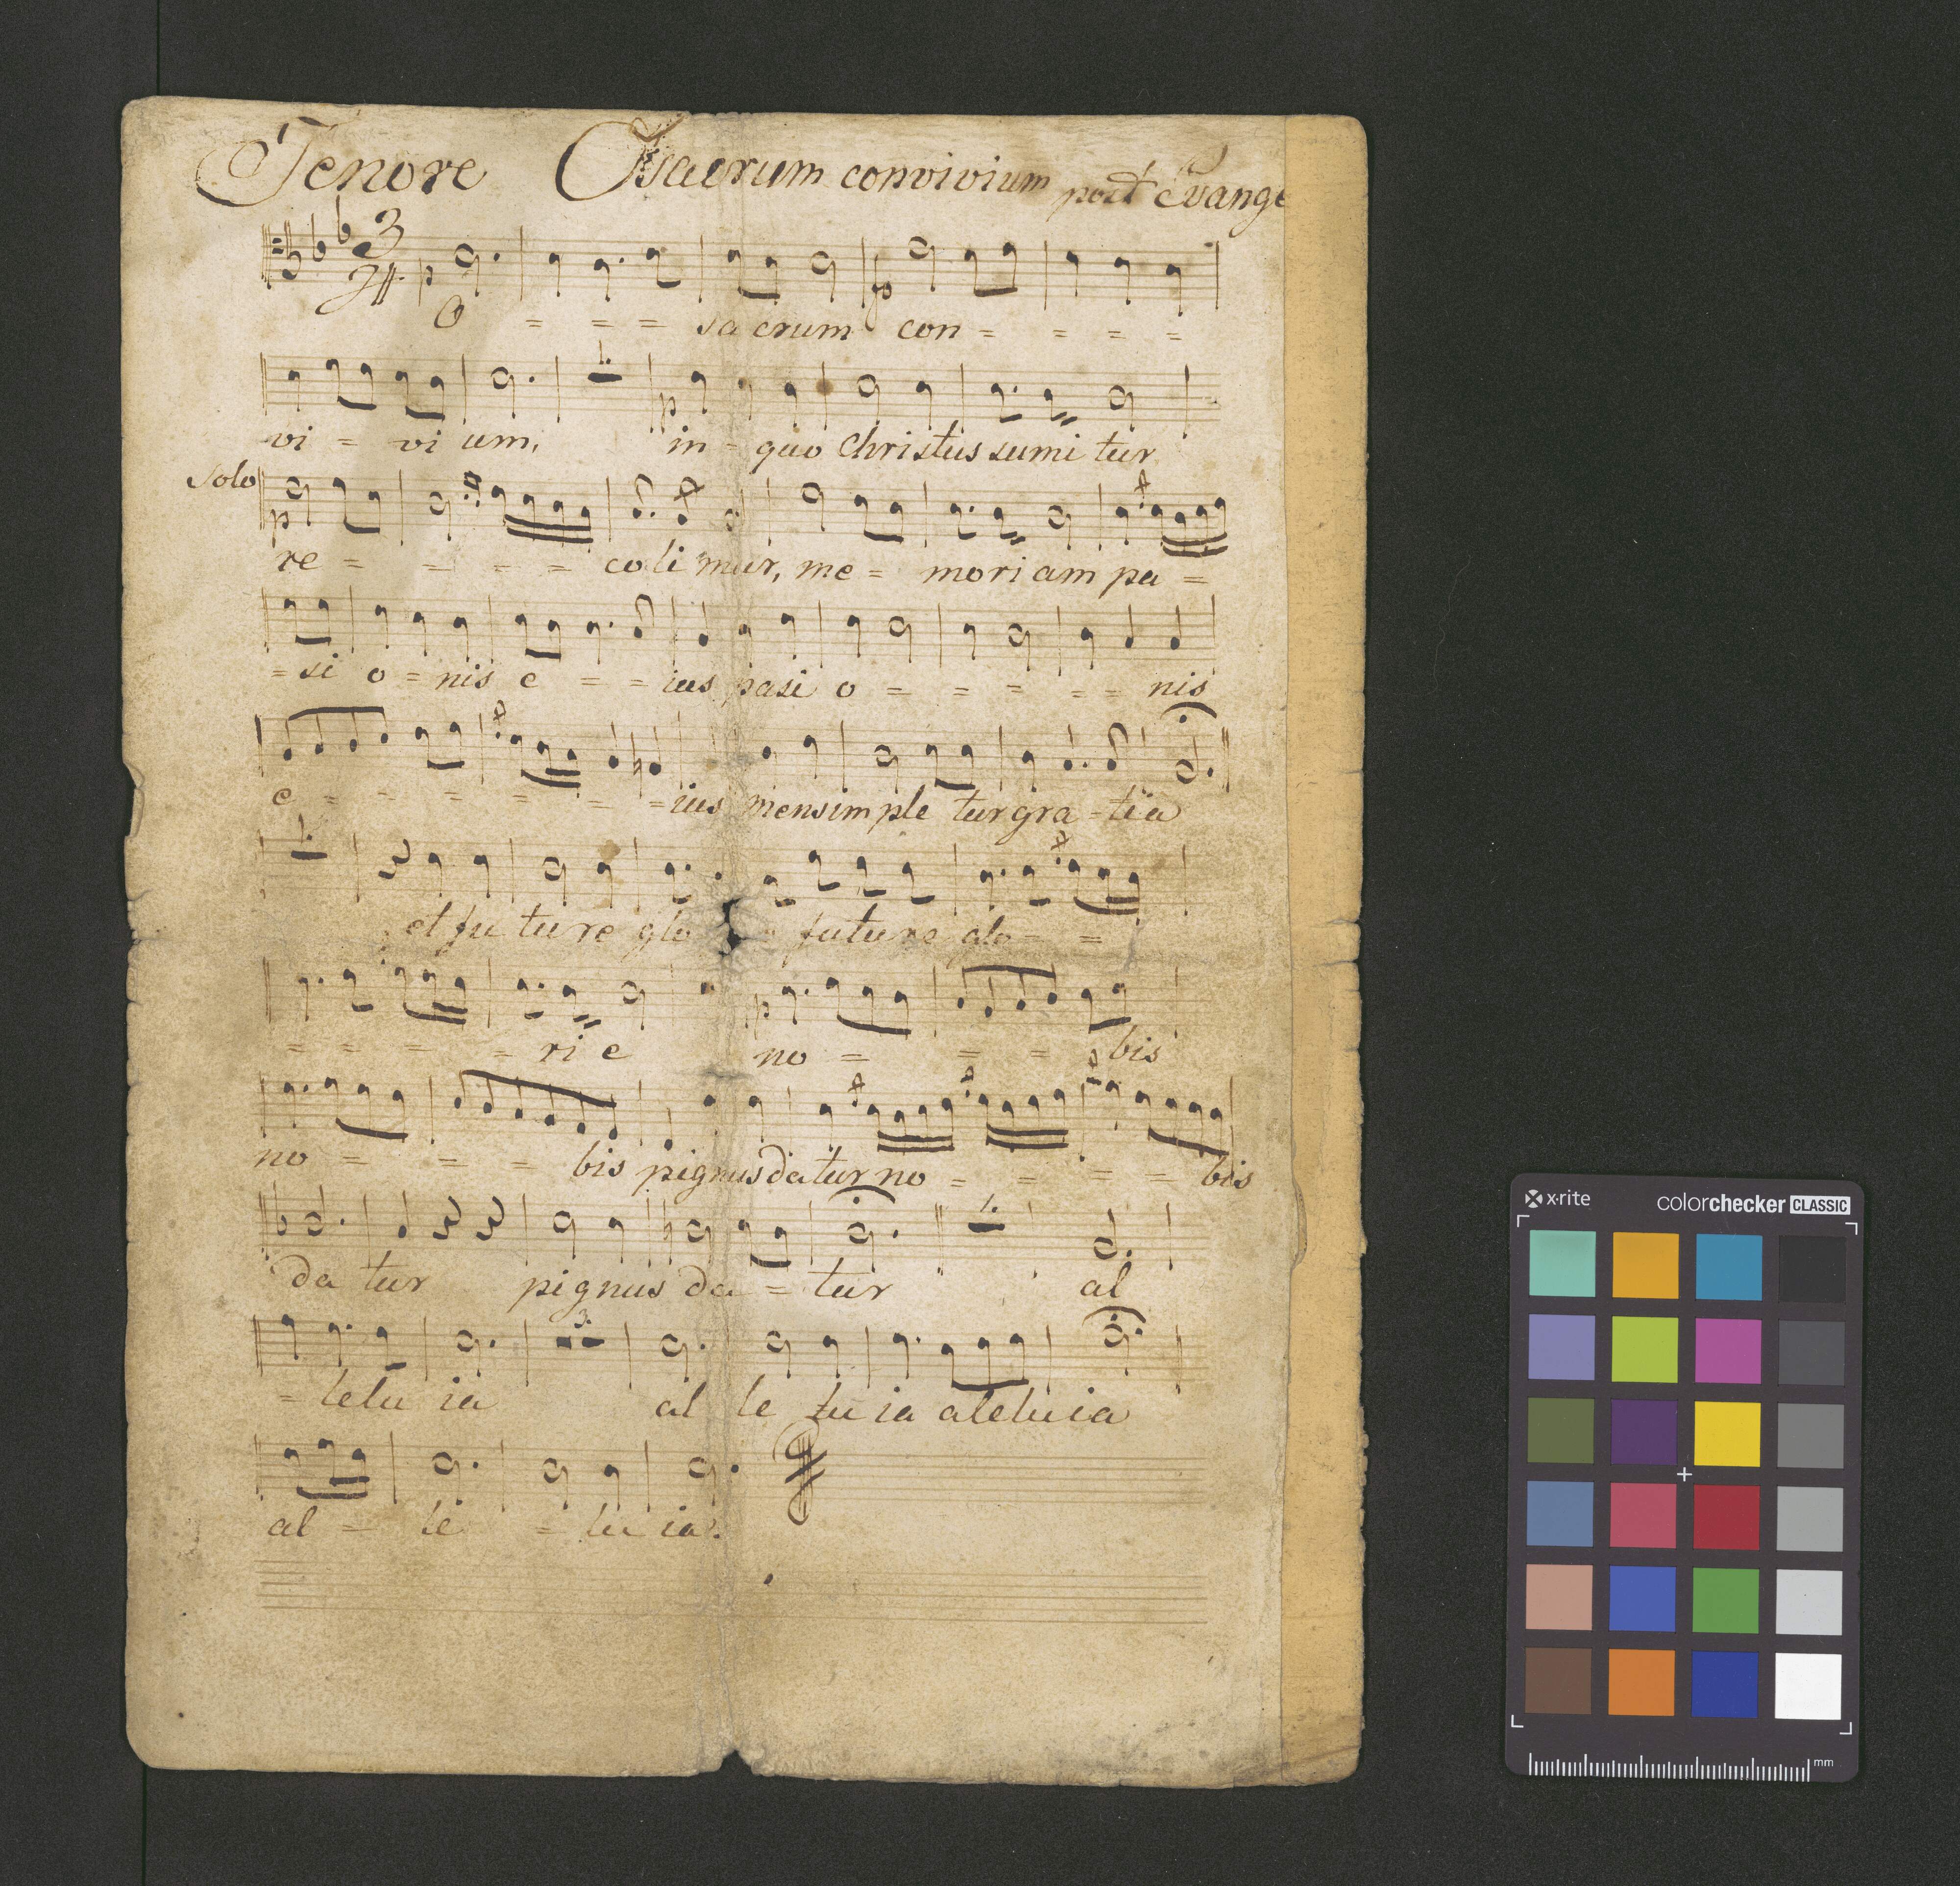 Tenore O sacrum convivium post Evange
3
O = = = sa crum con = = = =
vi = vi um, in = quo Christus sumi tur
Solo
re = = = = co li mur, me = mori am pa =
= si o = nis e = = ius pasi o = = = = = nis
e = = = = = = ius mens imple tur gra = tia
et fu tu re glo future glo = =
= = = = ri e no = = = bis
no = = = bis pignus da tur no = = = = bis
da tur pignus da = tur al
3.
= lelu ia al le lu ia aleluia
al = le = lu ia.
x·rite
colorchecker CLASSIC
mm